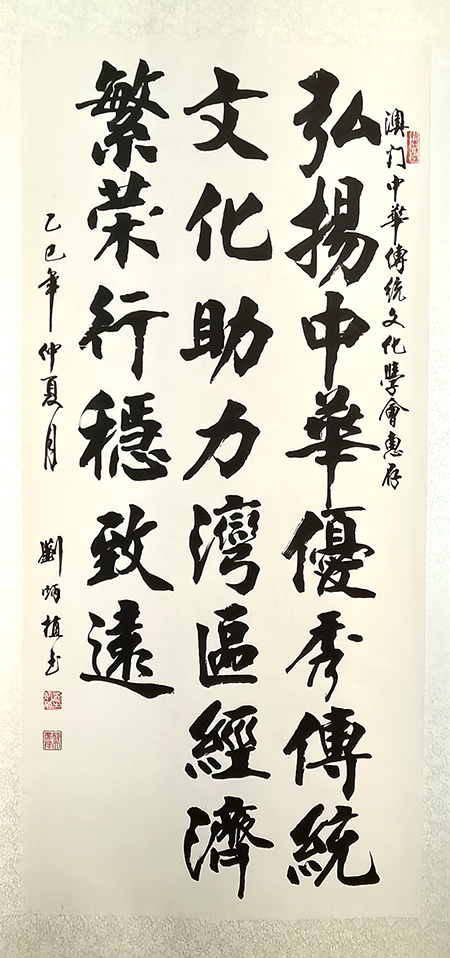 澳门中華傳統文化學會惠存
弘揚中華優秀傳統
文化助力灣區經濟
繁荣行穩致遠
乙巳年仲夏月
劉炳植书